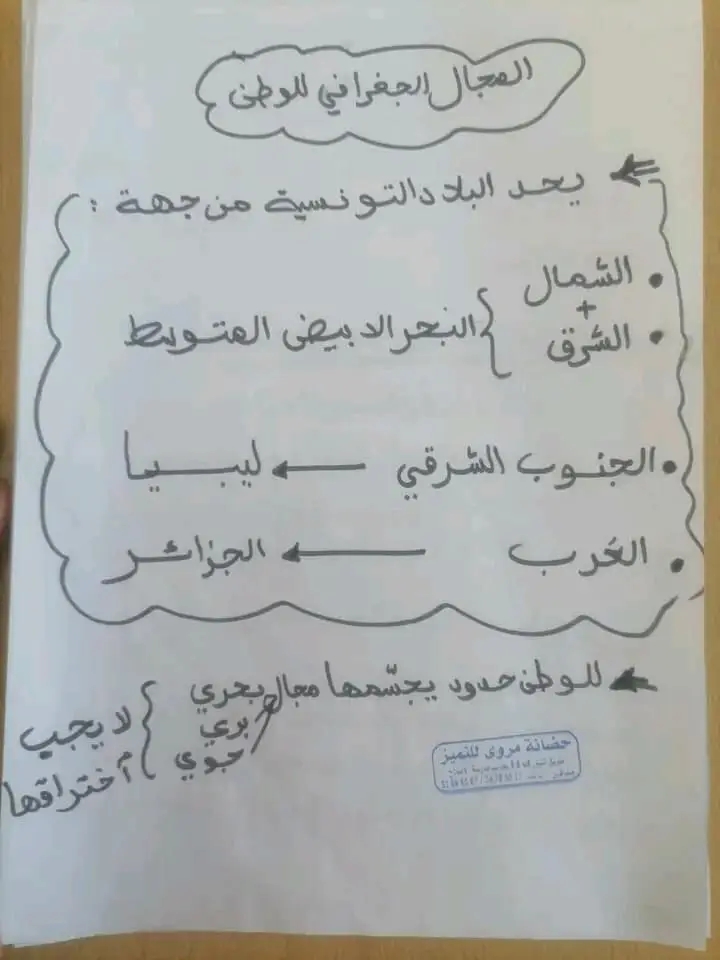 المجال الجغرافي للوطن
يحد البلاد التونسية من جهة :
• الشمال
+
• الشرق { البحر الابيض المتوسط
• الجنوب الشرقي ← ليبيا
• الغرب ← الجزائر
للوطن حدود يجسّمها مجال بحري
بري
جوي
{ لا يجب
أختراقها
حضانة مروى للتميز